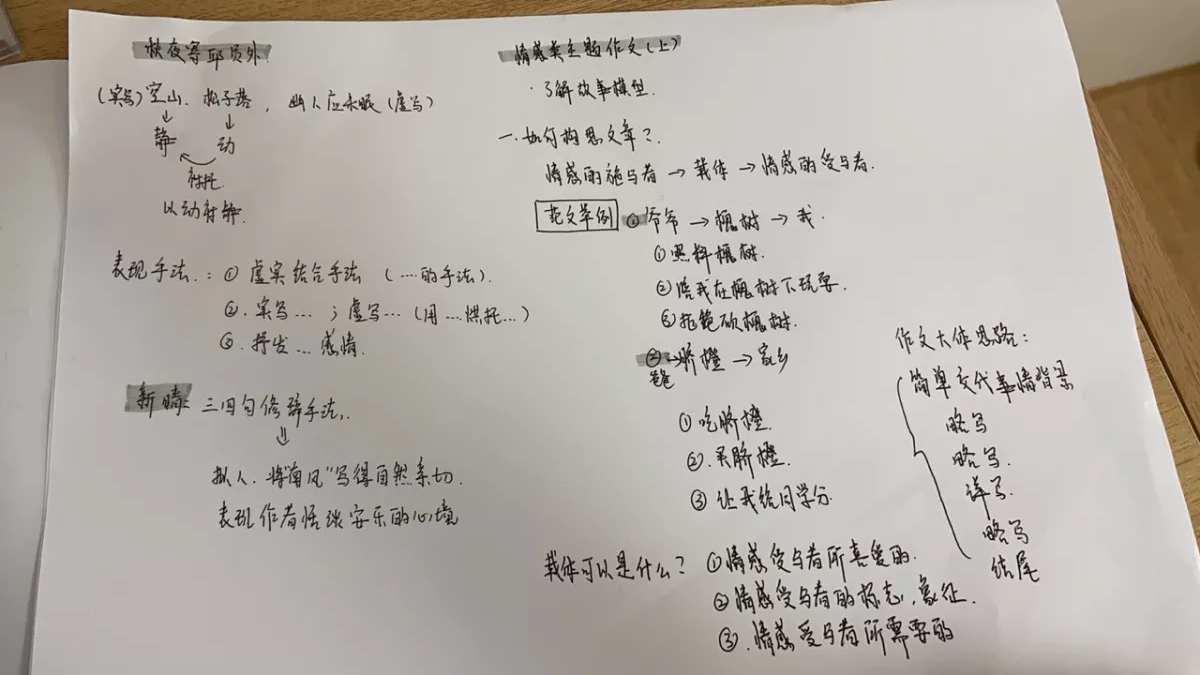 秋夜寄邱员外
(实写)空山、松子落，幽人应未眠(虚写)
↓ ↓
静 动
衬托
以动衬静.
表现手法：① 虚实结合手法 (……的手法).
②. 实写…；虚写…(用…烘托…)
③. 抒发…感情.
新晴: 三四句修辞手法.
⇓
拟人.将"南风"写得自然亲切.
表现作者恬淡安乐的心境
情感类主题作文(上)
·了解故事模型.
一.如何构思文章?
情感的施与者→载体→情感的受与者.
范文举例 ①爷爷→枫树→我.
①照料枫树.
②陪我在枫树下玩耍.
③拒绝砍枫树.
②→脐橙→家乡
爸
①吃脐橙.
②.买脐橙.
③ 让我给同学分
载体可以是什么? ①情感受与者所喜爱的.
②情感受与者的标志，象征.
③.情感受与者所需要的
作文大体思路：
简单交代事情背景
略写
略写.
详写.
略写
结尾